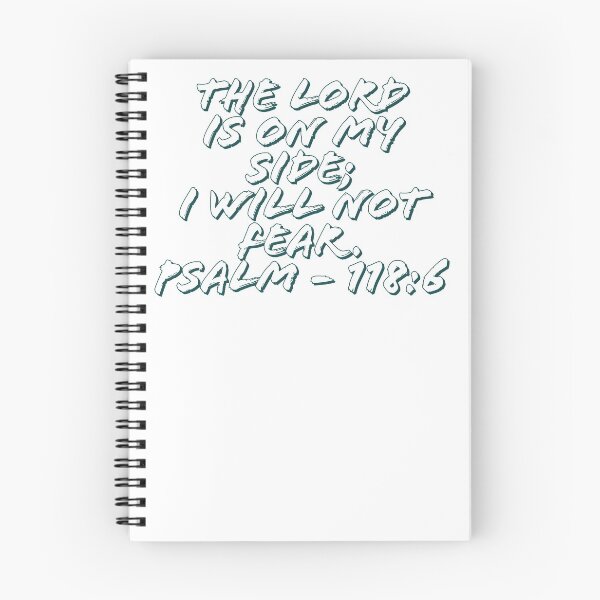 THE LORD
IS ON MY
SIDE;
I WILL NOT
FEAR.
PSALM - 118:6